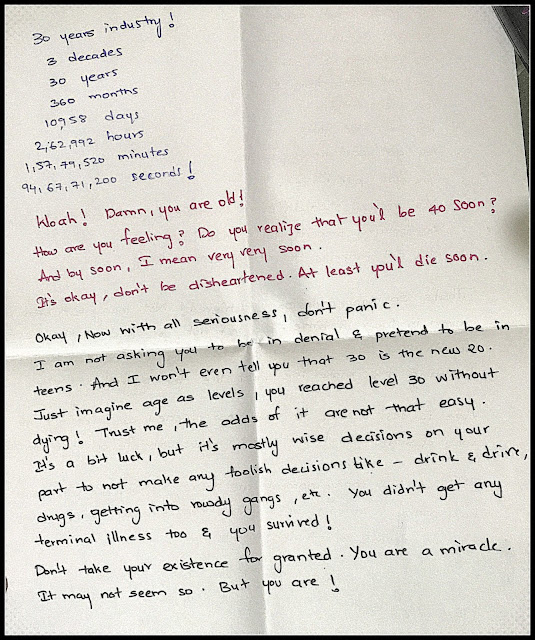 30 years industry!
3 decades
30 years
360 months
10,958 days
2,62,992 hours
1,57,79,520 minutes
94,67,71,200 seconds!
Woah! Damn, you are old!
How are you feeling? Do you realize that you'l be 40 soon?
And by soon, I mean very very soon.
It's okay, don't be disheartened. At least you'l die soon.
Okay, Now with all seriousness, don't panic.
I am not asking you to be in denial & pretend to be in
teens. And I won't even tell you that 30 is the new 20.
Just imagine age as levels, you reached level 30 without
dying! Trust me, the odds of it are not that easy.
It's a bit luck, but it's mostly wise decisions on your
part to not make any foolish decisions like - drink & drive,
drugs, getting into rowdy gangs, etc. You didn't get any
terminal illness too & you survived!
Don't take your existence for granted. You are a miracle.
It may not seem so. But you are!